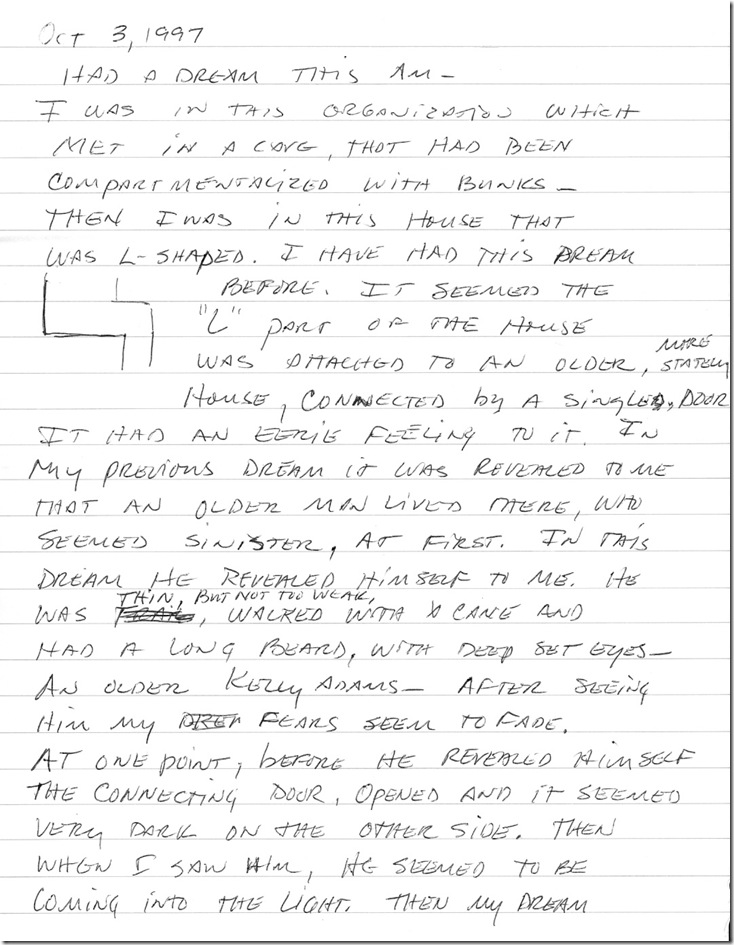 Oct 3, 1997
HAD A DREAM THIS AM -
I WAS IN THIS ORGANIZATION WHICH
MET IN A CAVE, THAT HAD BEEN
COMPARTMENTALIZED WITH BUNKS -
THEN I WAS IN THIS HOUSE THAT
WAS L-SHAPED. I HAVE HAD THIS DREAM
BEFORE. IT SEEMED THE
"L" PART OF THE HOUSE
WAS ATTACHED TO AN OLDER, MORE STATELY
HOUSE, CONNECTED by A SINGLE, DOOR
IT HAD AN EERIE FEELING TO IT. IN
MY PREVIOUS DREAM IT WAS REVEALED TO ME
THAT AN OLDER MAN LIVED THERE, WHO
SEEMED SINISTER, AT FIRST. IN THIS
DREAM HE REVEALED HIMSELF TO ME. HE
THIN, BUT NOT TOO WEAK,
WAS FRAIL, WALKED WITH A CANE AND
HAD A LONG BEARD, WITH DEEP SET EYES -
AN OLDER KELLY ADAMS - AFTER SEEING
HIM MY DREA FEARS SEEM TO FADE.
AT ONE POINT, bEFORE HE REVEALED HIMSELF
THE CONNECTING DOOR, OPENED AND IT SEEMED
VERY DARK ON THE OTHER SIDE. THEN
WHEN I SAW HIM, HE SEEMED TO BE
COMING INTO THE LIGHT. THEN MY DREAM